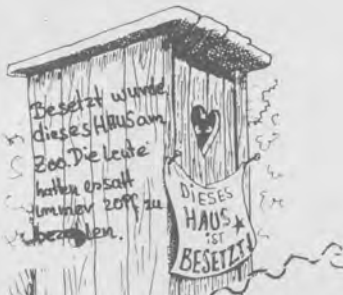 Besetzt wurde
dieses HAUS am
Zoo. Die Leute
hatten es satt
immer 20Pf zu
bezahlen.
DIESES
HAUS
ist
BESETZT!